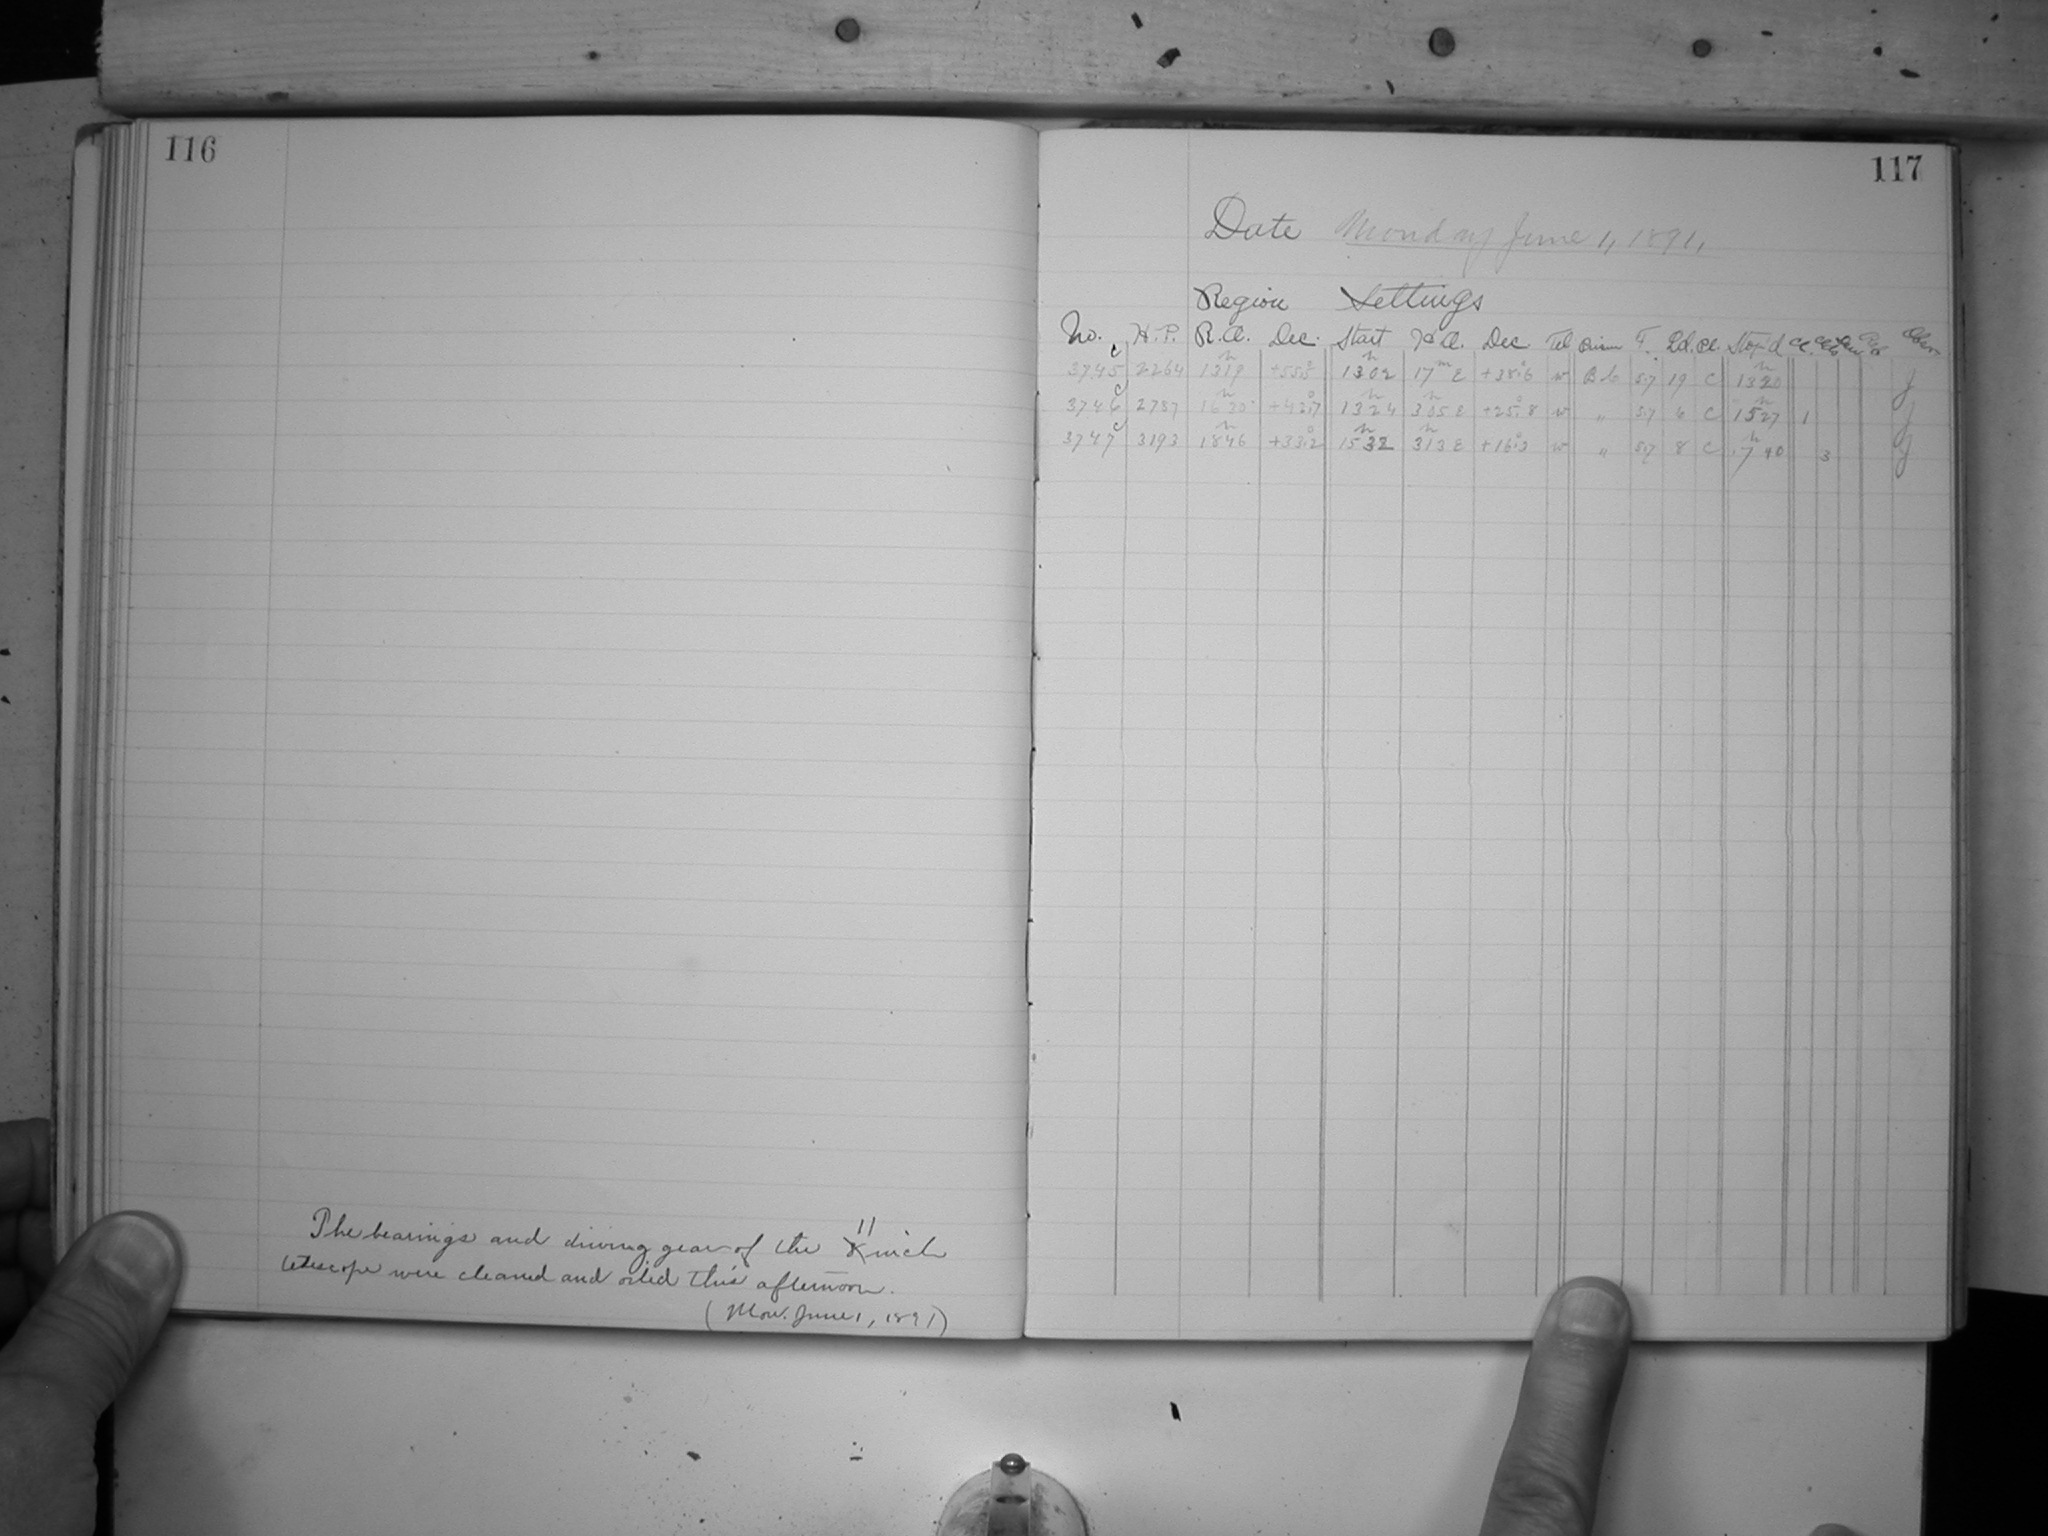 116
The bearings and driving gear of the 11 inch
telescope were cleaned and oiled this afternoon.
(Mon. June 1, 1891)
117
Date Monday June 1, 1891,
Region Settings
No. H.P. R.A. Dec. Start H.A. Dec Tel Prism T. Ld. Cl. Stop'd Cl. Obsr
3745 C 2264 13h19 +55°.5 13h02 17m E +38°.6 w B6 57 19 C 13h20 J
3746 C 2787 16h30 +42°.7 13h24 3h05 E +25°.8 w " 57 6 C 15h27 1 J
3747 C 3193 18h46 +33°.2 15h32 3h13 E +16°.3 w " 57 8 C 17h40 3 J